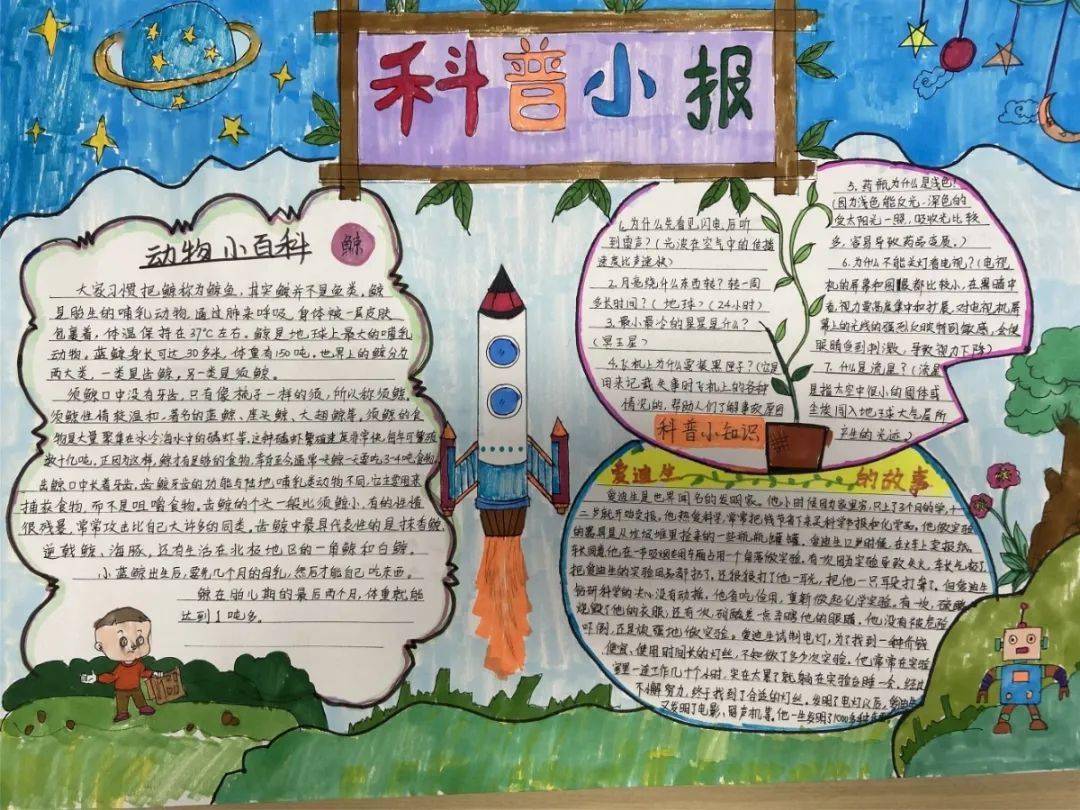 科普小报
动物小百科
鲸
大家习惯把鲸称为鲸鱼，其实鲸并不是鱼类。鲸
是胎生的哺乳动物，通过肺来呼吸，身体被一层皮肤
包裹着，体温保持在37℃左右。鲸是地球上最大的哺乳
动物，蓝鲸身长可达30多米，体重有150吨。世界上的鲸分为
两大类，一类是齿鲸，另一类是须鲸。
须鲸口中没有牙齿，只有像梳子一样的须，所以称须鲸。
须鲸性情较温和，著名的蓝鲸、座头鲸、大翅鲸等。须鲸的食
物是大量聚集在冰冷海水中的磷虾等。这种磷虾繁殖速度非常快，每年可繁殖
数十亿吨，正因为这样，鲸才有足够的食物，通常蓝鲸一天要吃3~4吨食物。
齿鲸口中长着牙齿，齿鲸牙齿的功能与陆地哺乳类动物不同，它主要用来
捕获食物，而不是咀嚼食物，齿鲸的个头一般比须鲸小，有的性情
很残暴，常常攻击比自己大许多的同类。齿鲸中最具代表性的是抹香鲸、
逆戟鲸、海豚，还有生活在北极地区的一角鲸和白鲸。
小蓝鲸出生后，要先几个月的母乳，然后才能自己吃东西。
鲸在胎儿期的最后两个月，体重就能
达到1吨多。
1.为什么先看见闪电，后听
到雷声？（光波在空气中的传播
速度比声波快）
2.月亮绕什么东西转？转一周
多长时间？（地球）（24小时）
3.最小最冷的星星是什么？
（冥王星）
4.飞机上为什么要装黑匣子？（它是
用来记载失事时飞机上的各种
情况的，帮助人们了解事故原因
科普小知识
5.药瓶为什么是浅色？
（因为浅色能反光，深色的
受太阳光一照，吸收光比较
多，容易导致药品变质。）
6.为什么不能关灯看电视？（电视
机的屏幕和图眼都比较小，在黑暗中
看，视力要高度集中和扩展，对电视机屏
幕上的光线的强烈反映特同敏感，会使
眼睛受到刺激，导致视力下降）
7.什么是流星？（流星
是指太空中很小的固体或
尘埃闯入地球大气层所
产生的光迹）
爱迪生的故事
爱迪生是世界闻名的发明家。他小时候因为家里穷，只上了3个月的学，十
二岁就开始卖报。他热爱科学，常常把钱节省下来买科学书报和化学药。他做实验
的器具是从垃圾堆里捡来的一些瓶瓶罐罐。爱迪生12岁时候，在火车上卖报纸，
车长同意他在一节吸烟专用车厢占用一个角落做实验。有一次因为实验引致着火，车长气极了，
把爱迪生的实验用品都扔了，还狠狠打了他一耳光，把他一只耳朵打聋了。但爱迪生
钻研科学的决心没有动摇。他省吃俭用，重新做起化学实验。有一次，硫酸
烧毁了他的衣服，还有一次，硝酸差一点弄瞎他的眼睛。他没有被危险
吓倒，还是顽强地做实验。爱迪生试制电灯，为了找到一种价钱
便宜，使用时间长的灯丝，不知做了多少次实验。他常常在实验
室里一连工作几十个小时，实在太累了，就躺在实验台睡一会。经过
不懈努力，终于找到了合适的灯丝，发明了电灯以后，
又发明了电影、留声机等。他一生发明了1000多种